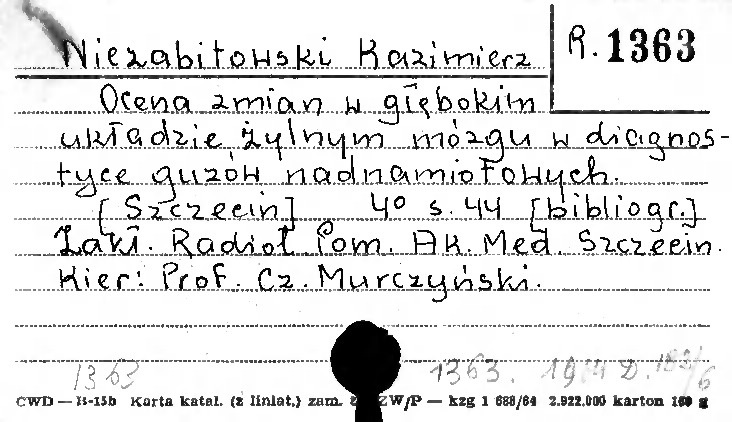 Niezabitowski Kazimierz R. 1363
Ocena zmian w głębokim
układzie żylnym mózgu w diagnos-
tyce guzów nadnamiotowych.
[Szczecin] 4° s. 44 [bibliogr.]
Zakł. Radiol Pom. Ak. Med. Szczecin.
Kier: Prof. Cz. Murczyński.
1363 1363. 19 D.
CWD — B-15b Karta katal. (z liniat.) zam. ZW/P — kzg 1 688/64 2.922.000 karton 160 g